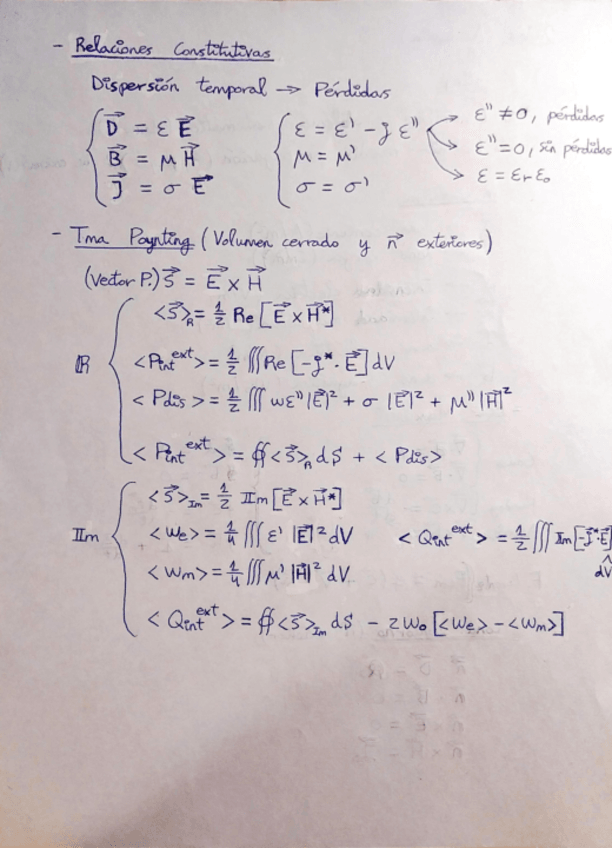 - Relaciones Constitutivas
Dispersión temporal → Pérdidas
D⃗ = ε E⃗
B⃗ = μ H⃗
J⃗ = σ E⃗
ε = ε' - j ε''
μ = μ'
σ = σ'
ε'' ≠ 0, pérdidas
ε'' = 0, sin pérdidas
ε = εr ε₀
- Tma Poynting (Volumen cerrado y n⃗ exteriores)
(Vector P.) S⃗ = E⃗ x H⃗
ℝ
<S⃗>_R = 1/2 Re [E⃗ x H⃗*]
<Pint^ext> = 1/2 ∭ Re [-J* · E⃗] dV
<Pdis> = 1/2 ∭ ωε'' |E⃗|² + σ |E⃗|² + μ'' |H⃗|²
<Pint^ext> = ∯ <S⃗>_R dS + <Pdis>
Im
<S⃗>_Im = 1/2 Im [E⃗ x H⃗*]
<We> = 1/4 ∭ ε' |E⃗|² dV <Qint^ext> = 1/2 ∭ Im [-J⃗*·E⃗] dV
<Wm> = 1/4 ∭ μ' |H⃗|² dV
<Qint^ext> = ∯ <S⃗>_Im dS - 2ω₀ [<We> - <Wm>]